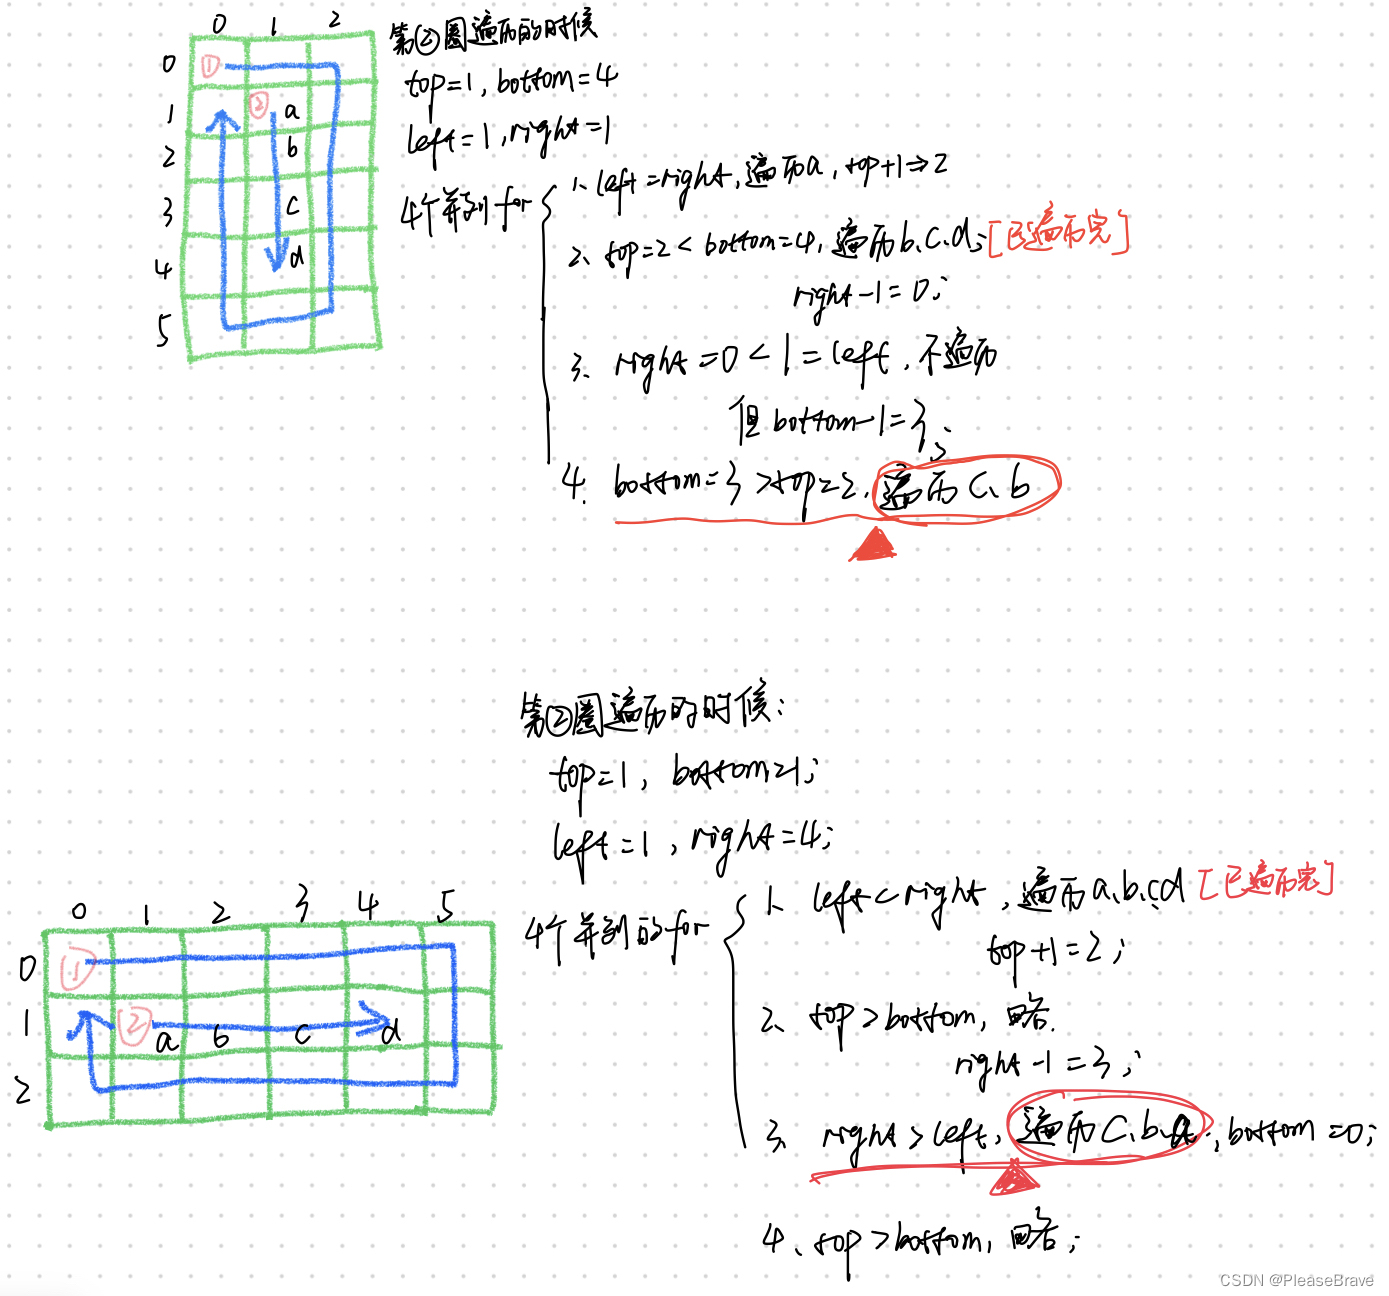 0 1 2
0
1
2
3
4
5
①
② a
b
c
d
第②圈遍历的时候
top=1, bottom=4
left=1, right=1
4个并列for
1、left=right, 遍历a, top+1⇒2
2、top=2<bottom=4, 遍历b、c、d; [已遍历完]
right-1=0;
3、right=0<1=left, 不遍历
但bottom-1=3;
4、bottom=3>top=2, 遍历c、b
第②圈遍历的时候:
top=1, bottom=1;
left=1, right=4;
4个并列的for
1、left<right, 遍历a、b、c、d [已遍历完]
top+1=2;
2、top>bottom, 略.
right-1=3;
3、right>left, 遍历c、b、a; bottom=0;
4、top>bottom, 略;
0 1 2 3 4 5
0
1
2
①
② a b c d
CSDN @PleaseBrave